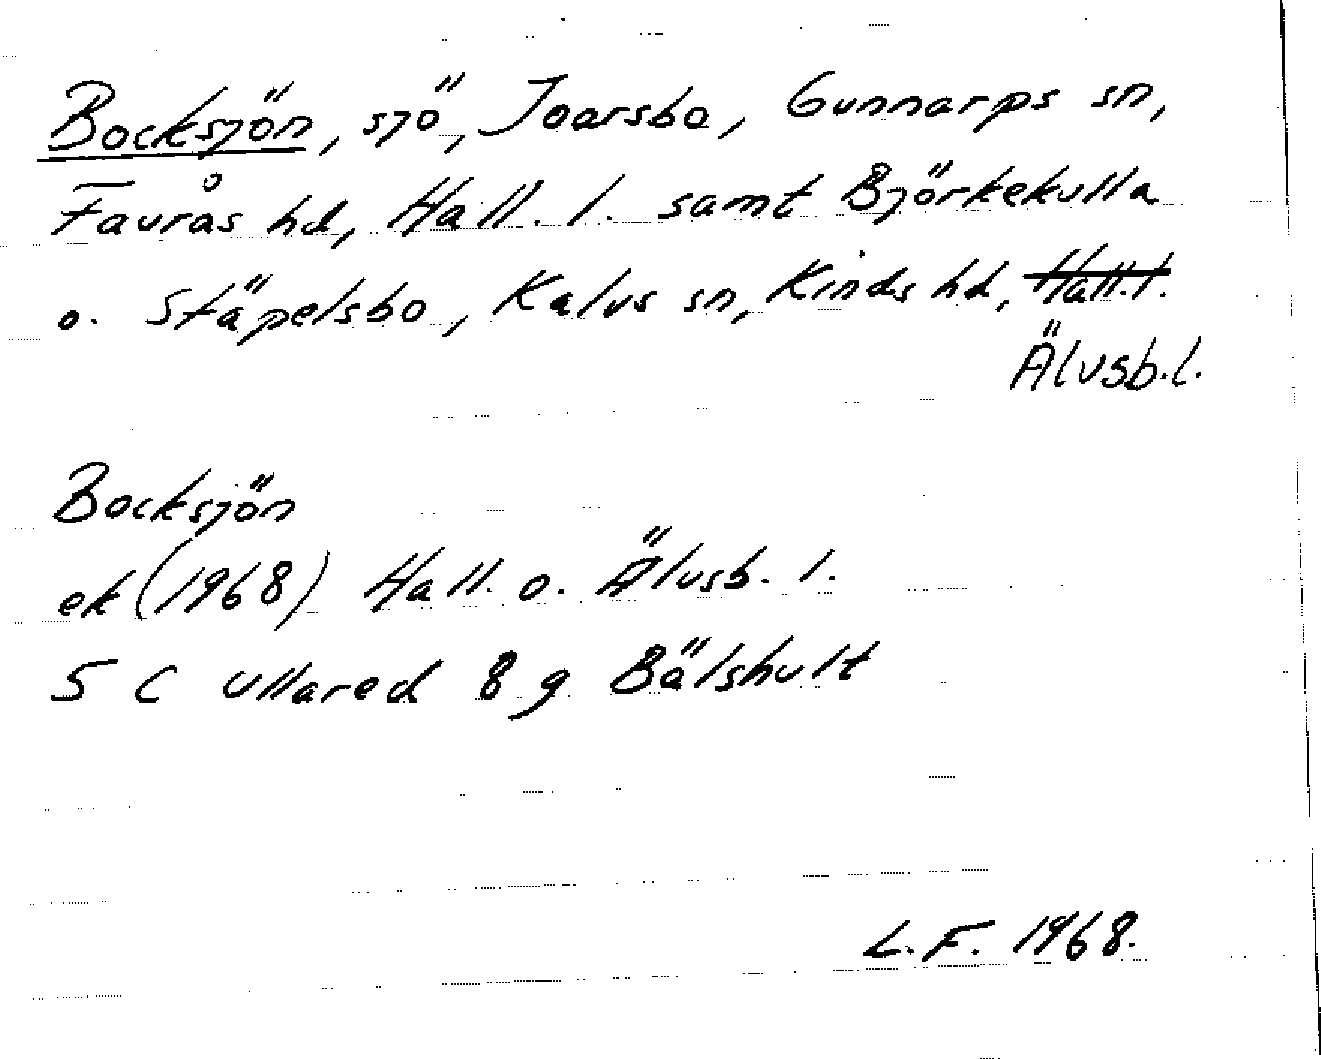 Bocksjön, sjö, Joarsbo, Gunnarps sn,
Faurås hd, Hall. l. samt Björkekulla
o. Stäpelsbo, Kalvs sn, Kinds hd, Hall. l.
Älvsb. l.
Bocksjön
ek (1968) Hall. o. Älvsb. l.
5 C Ullared 8 g Bälshult
L. F. 1968.